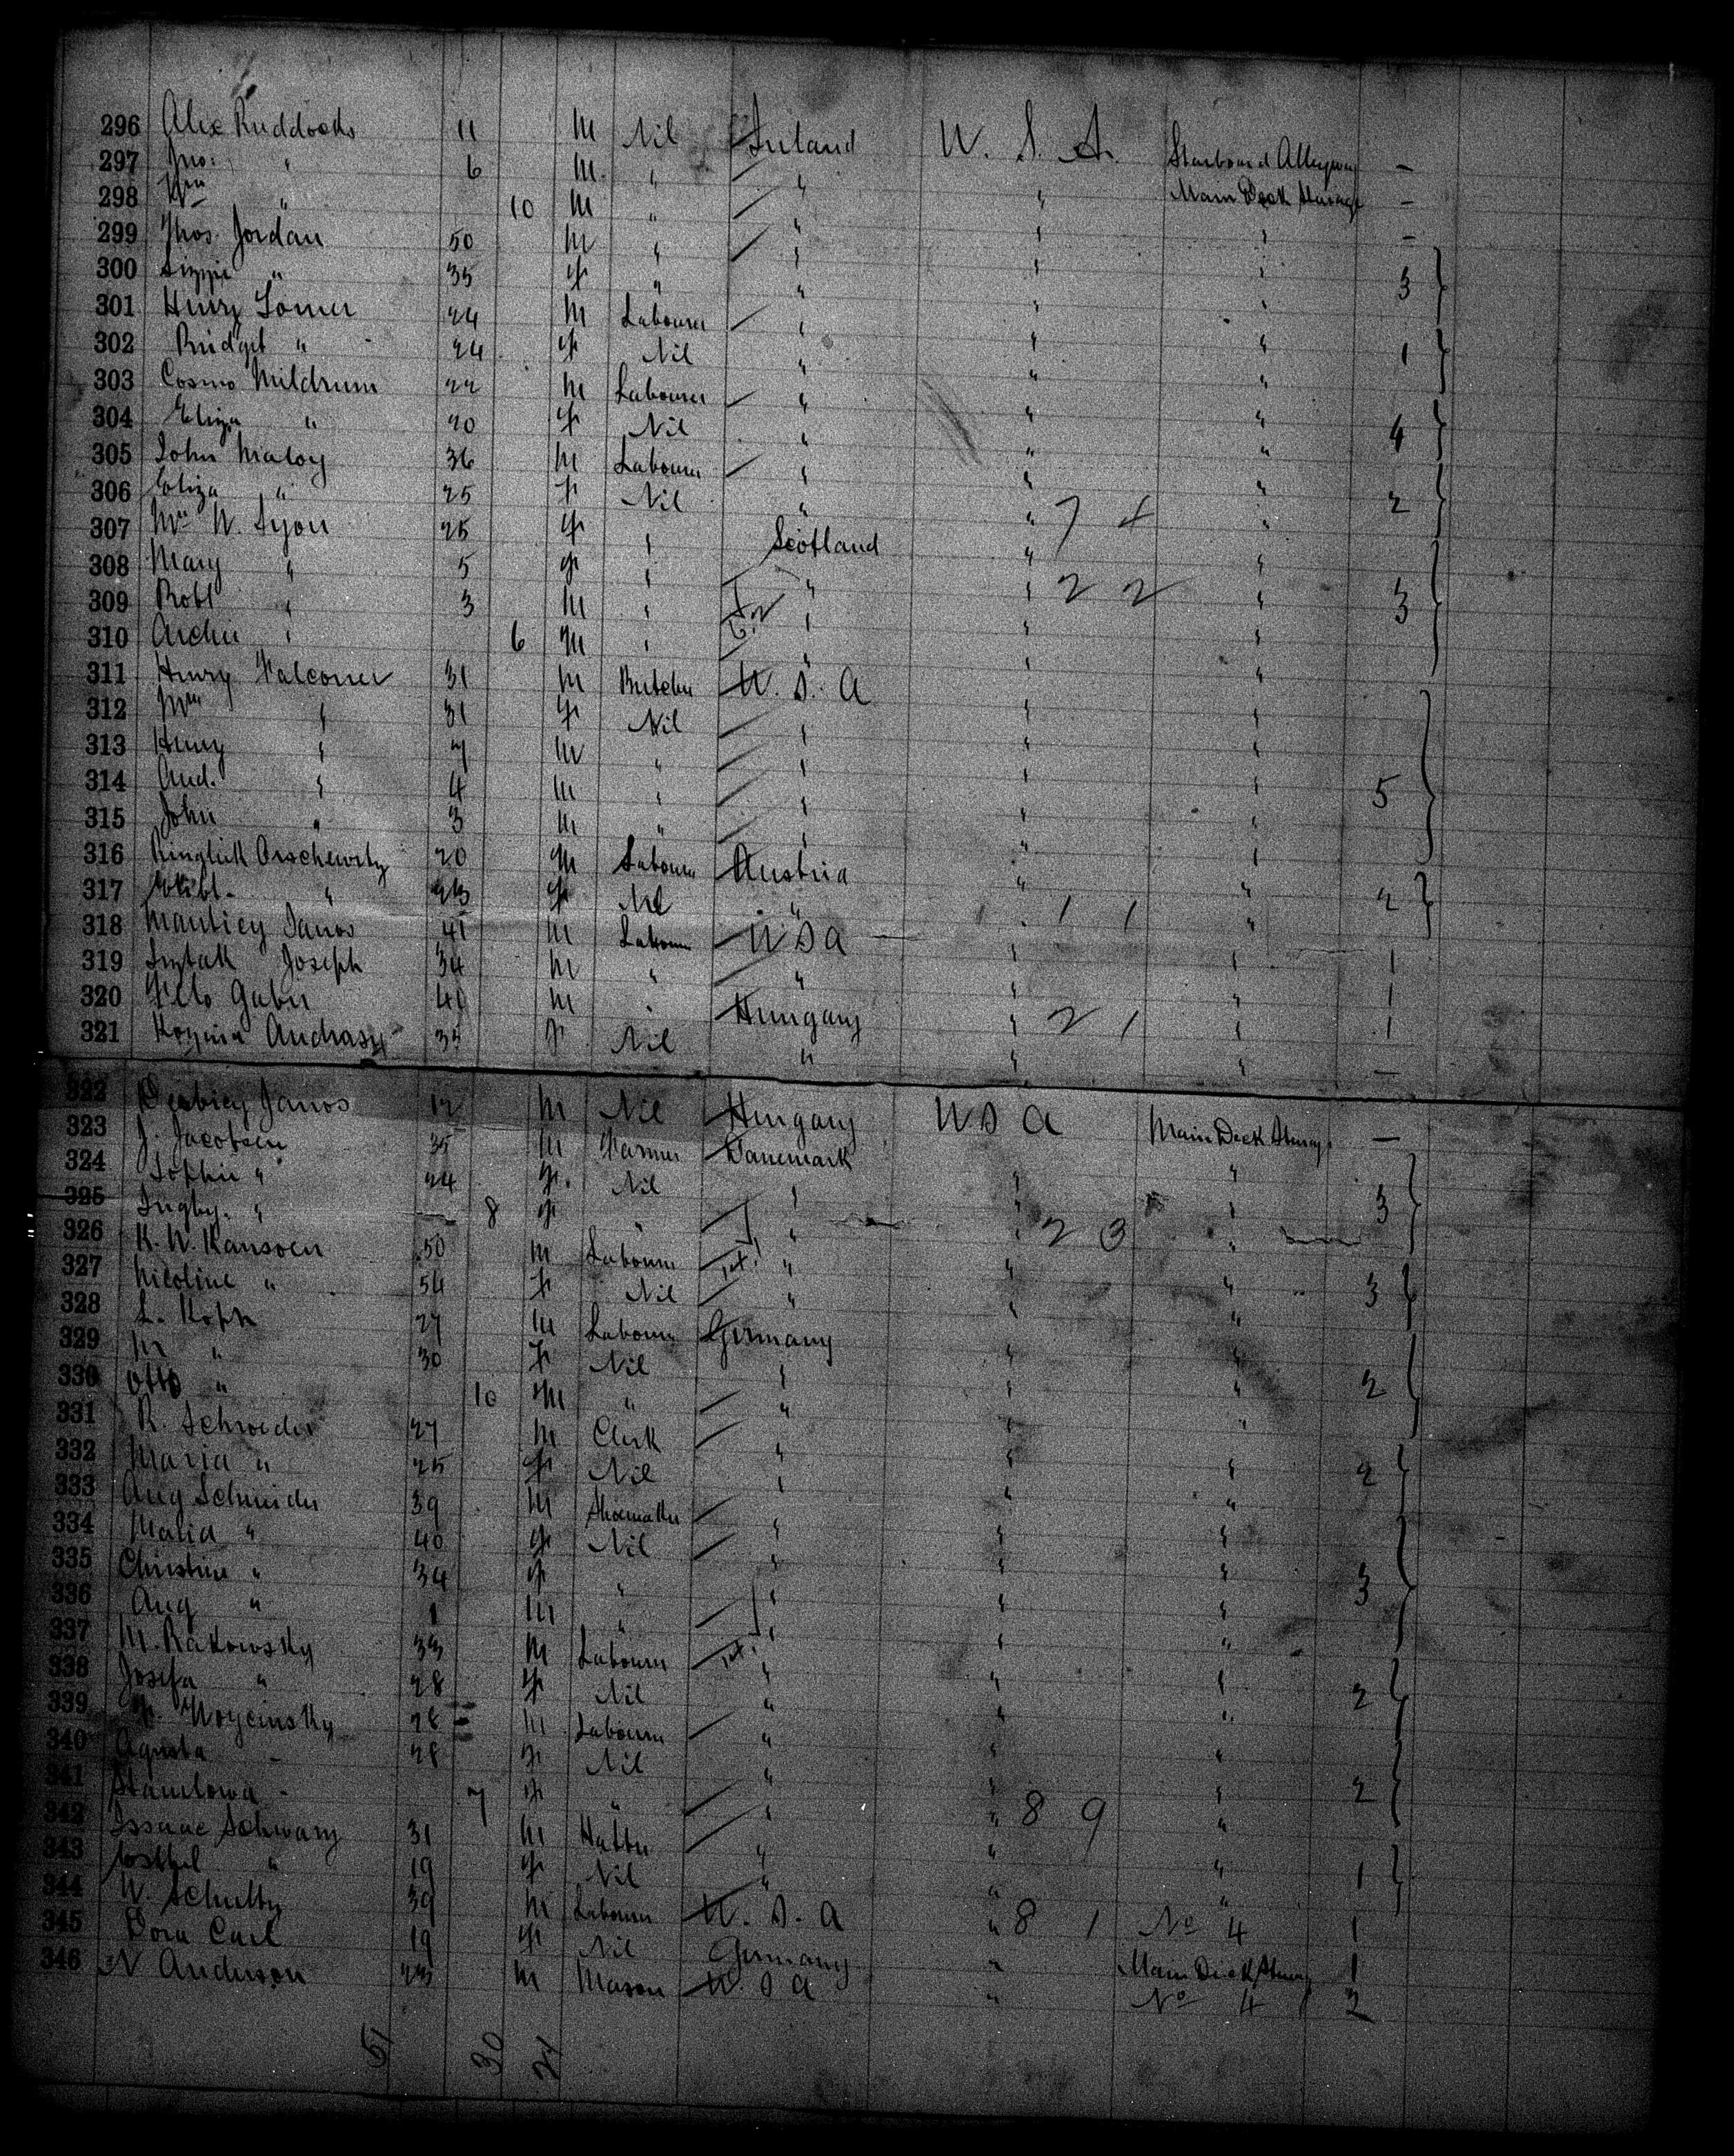 296 Alex Ruddocks 11 M Nil Ireland U. S. A. Starboard Alleyway —
297 Jno. " 6 M " " Main Deck Steerage —
298 Wm " 10 M " " " " —
299 Thos. Jordan 50 M " " " "
300 Lizzie " 35 F " " " " 3
301 Henry 24 M Labourer " " "
302 Bridget " 24 F Nil " " " 1
303 Cosmo Mildrum 22 M Labourer " " "
304 Eliza " 20 F Nil " " " 4
305 John Maloy 36 M Labourer " " "
306 Eliza " 25 F Nil " " 7 4 " 2
307 Mrs W. Lyon 25 F " Scotland " "
308 Mary " 5 F " " " 2 2 "
309 Robt " 3 M " " " " 3
310 Archie " 6 M " " " "
311 Henry Falconer 31 M Butcher U. S. A " "
312 Mrs " 31 F Nil " " "
313 Henry " 7 M " " " "
314 And. " 4 M " " " " 5
315 John " 3 M " " " "
316 20 M Labourer Austria " "
317 " 23 F Nil " " 1 1 " 2
318 Janos 41 M Labourer U S A " " 1
319 Joseph 34 M " " " " 1
320 Gabor 40 M " Hungary " 2 1 " 1
321 Andrasy 35 F Nil " " " —
322 Janos 12 M Nil Hungary U S A Main Deck Steerage —
323 J. Jacobsen 35 M Farmer Danemark " "
324 Sophie " 24 F. Nil " " " 3
325 Ingby. " — 8 F " " " 2 3 "
326 K. W. 50 M Labourer " " "
327 Nicoline " 54 F Nil " " " 3
328 L. Koph 27 M Labourer Germany " "
329 M " 30 F Nil " " "
330 Otto " 10 M " " " " 2
331 R. Schroeder 27 M Clerk " " "
332 Maria " 25 F Nil " " " 2
333 Aug Schneider 39 M Shoemaker " " "
334 Maria " 40 F Nil " " "
335 Christine " 34 F " " " " 3
336 Aug " 1 M " " " "
337 M. Rakowsky 33 M Labourer " " "
338 Josefa " 28 F Nil " " " 2
339 Woycinsky 28 M Labourer " " "
340 Agusta - 28 F Nil " " "
341 - 7 F " " " 8 9 " 2
342 Issaac Schwarz 31 M Hatter " " "
343 " 19 F Nil " " " 1
344 W. Schultz 39 M Labourer U. S. A " 8 1 No 4 1
345 Dora Carl 19 F Nil Germany " Main Deck Steerage 1
346 N Anderson 23 M Mason U. S A " No 4 2
51 30 21